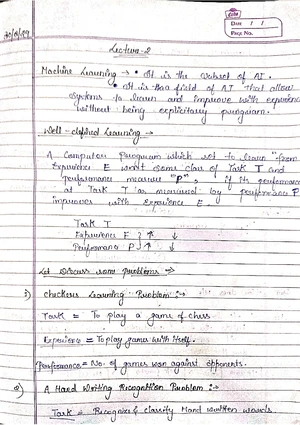 Date / /
Page No.
Lecture-2
Machine Learning → • It is the subset of AI.
• It is the field of AI that allow
systems to learn and improve with experience
without being explicitly program.
Well-defined Learning →
A Computer Program which set to learn "from
Experience E w.r.t some class of Task T and
Performance measure "P", if its performance
at Task T as measured by performance P
improves with Experience E.
Task T
Experience E } ↑ ↓
Performance P } ↑ ↓
Let Discuss some problems →
1) Checkers Learning Problem :→
Task = To play a game of chess.
Experience = To play games with itself.
Performance = No. of games won against opponents.
2) A Hand Writing Recognition Problem :→
Task → Recognize & classify Hand written words.